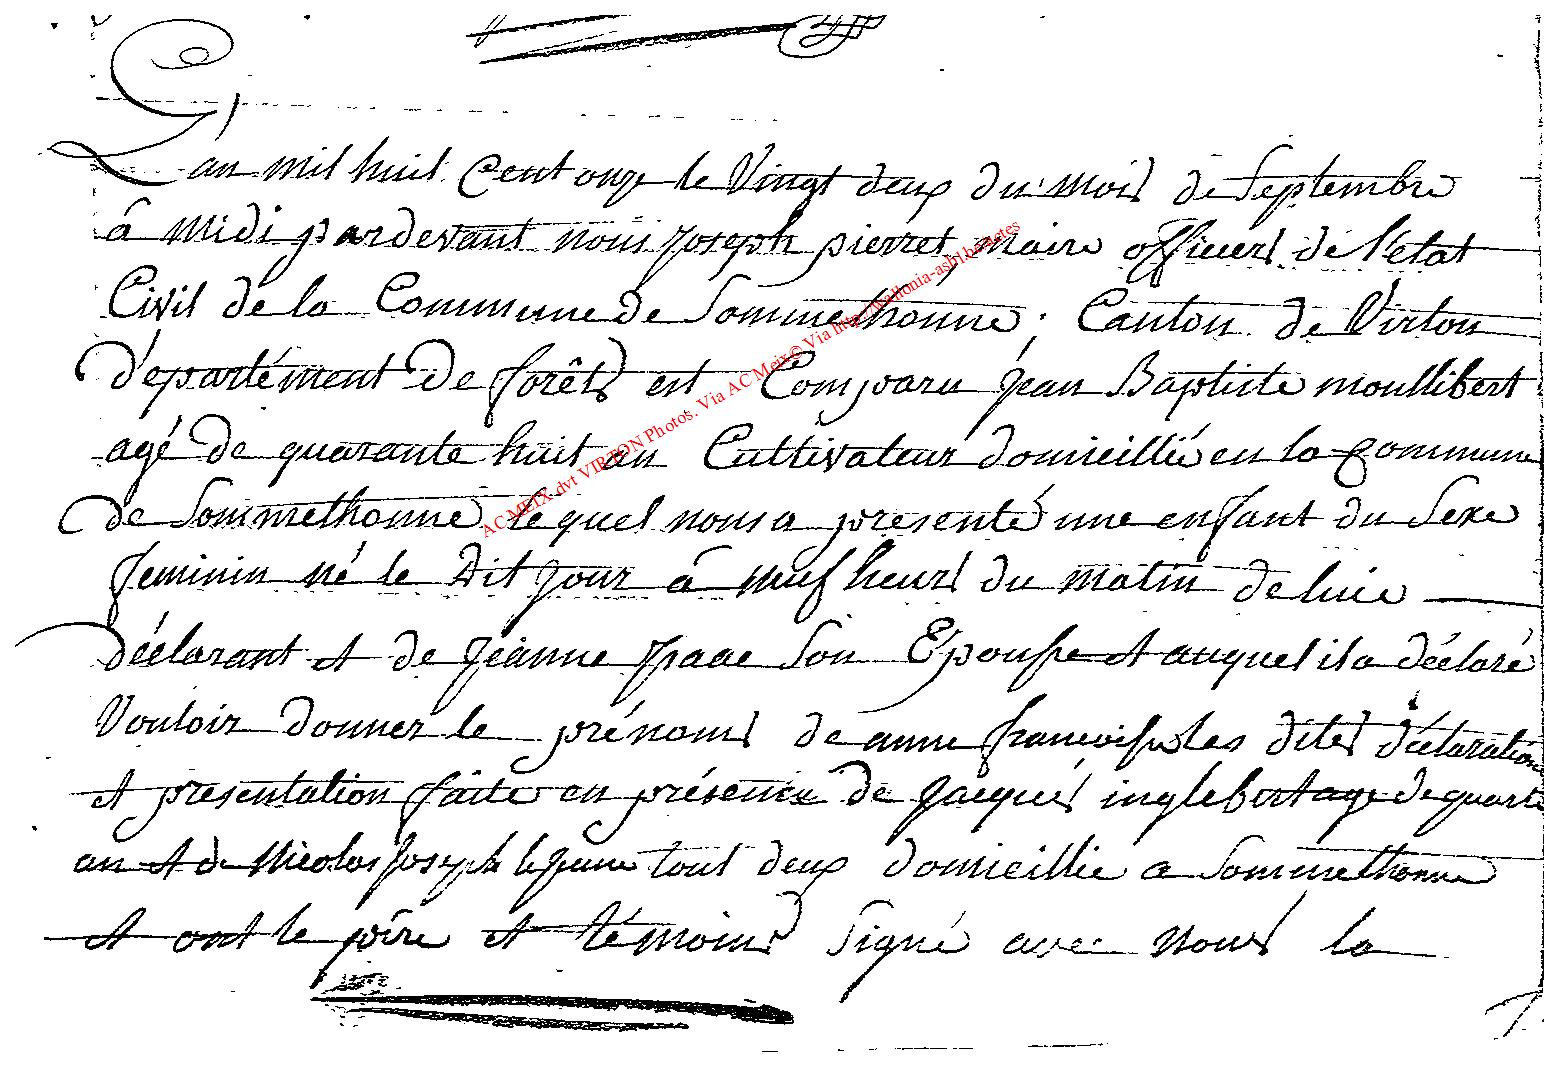 L'an mil huit Cent onze le Vingt deux du mois de Septembre
à midi pardevant nous Joseph pierret, maire officiers de l'etat
Civil de la Commune de Sommethonne ; Canton de Virton
département De forêts est Comparu jean Baptiste moullibert
agé de quarante huit an Cultivateur domicillié en la Commune
de Sommethonne lequel nous a presenté une enfant du Sexe
feminin né le Dit jour à neuf heurs du matin de luie
déclarant et de jeanne jsaac Son Epouse et auquel il a déclaré
Vouloir donner le prénoms de anne francoise les dites déclaration
et presentation faite en présence de jacques inglebert age de quarte
an et de Nicolas joseph lejeune tout deux domicillie a Sommethonne
et ont le père et témoins Signé avec nous la
AC MEIX-dvt VIRTON Photos. Via AC Meix© Via http://wallonia-asbl.be/actes